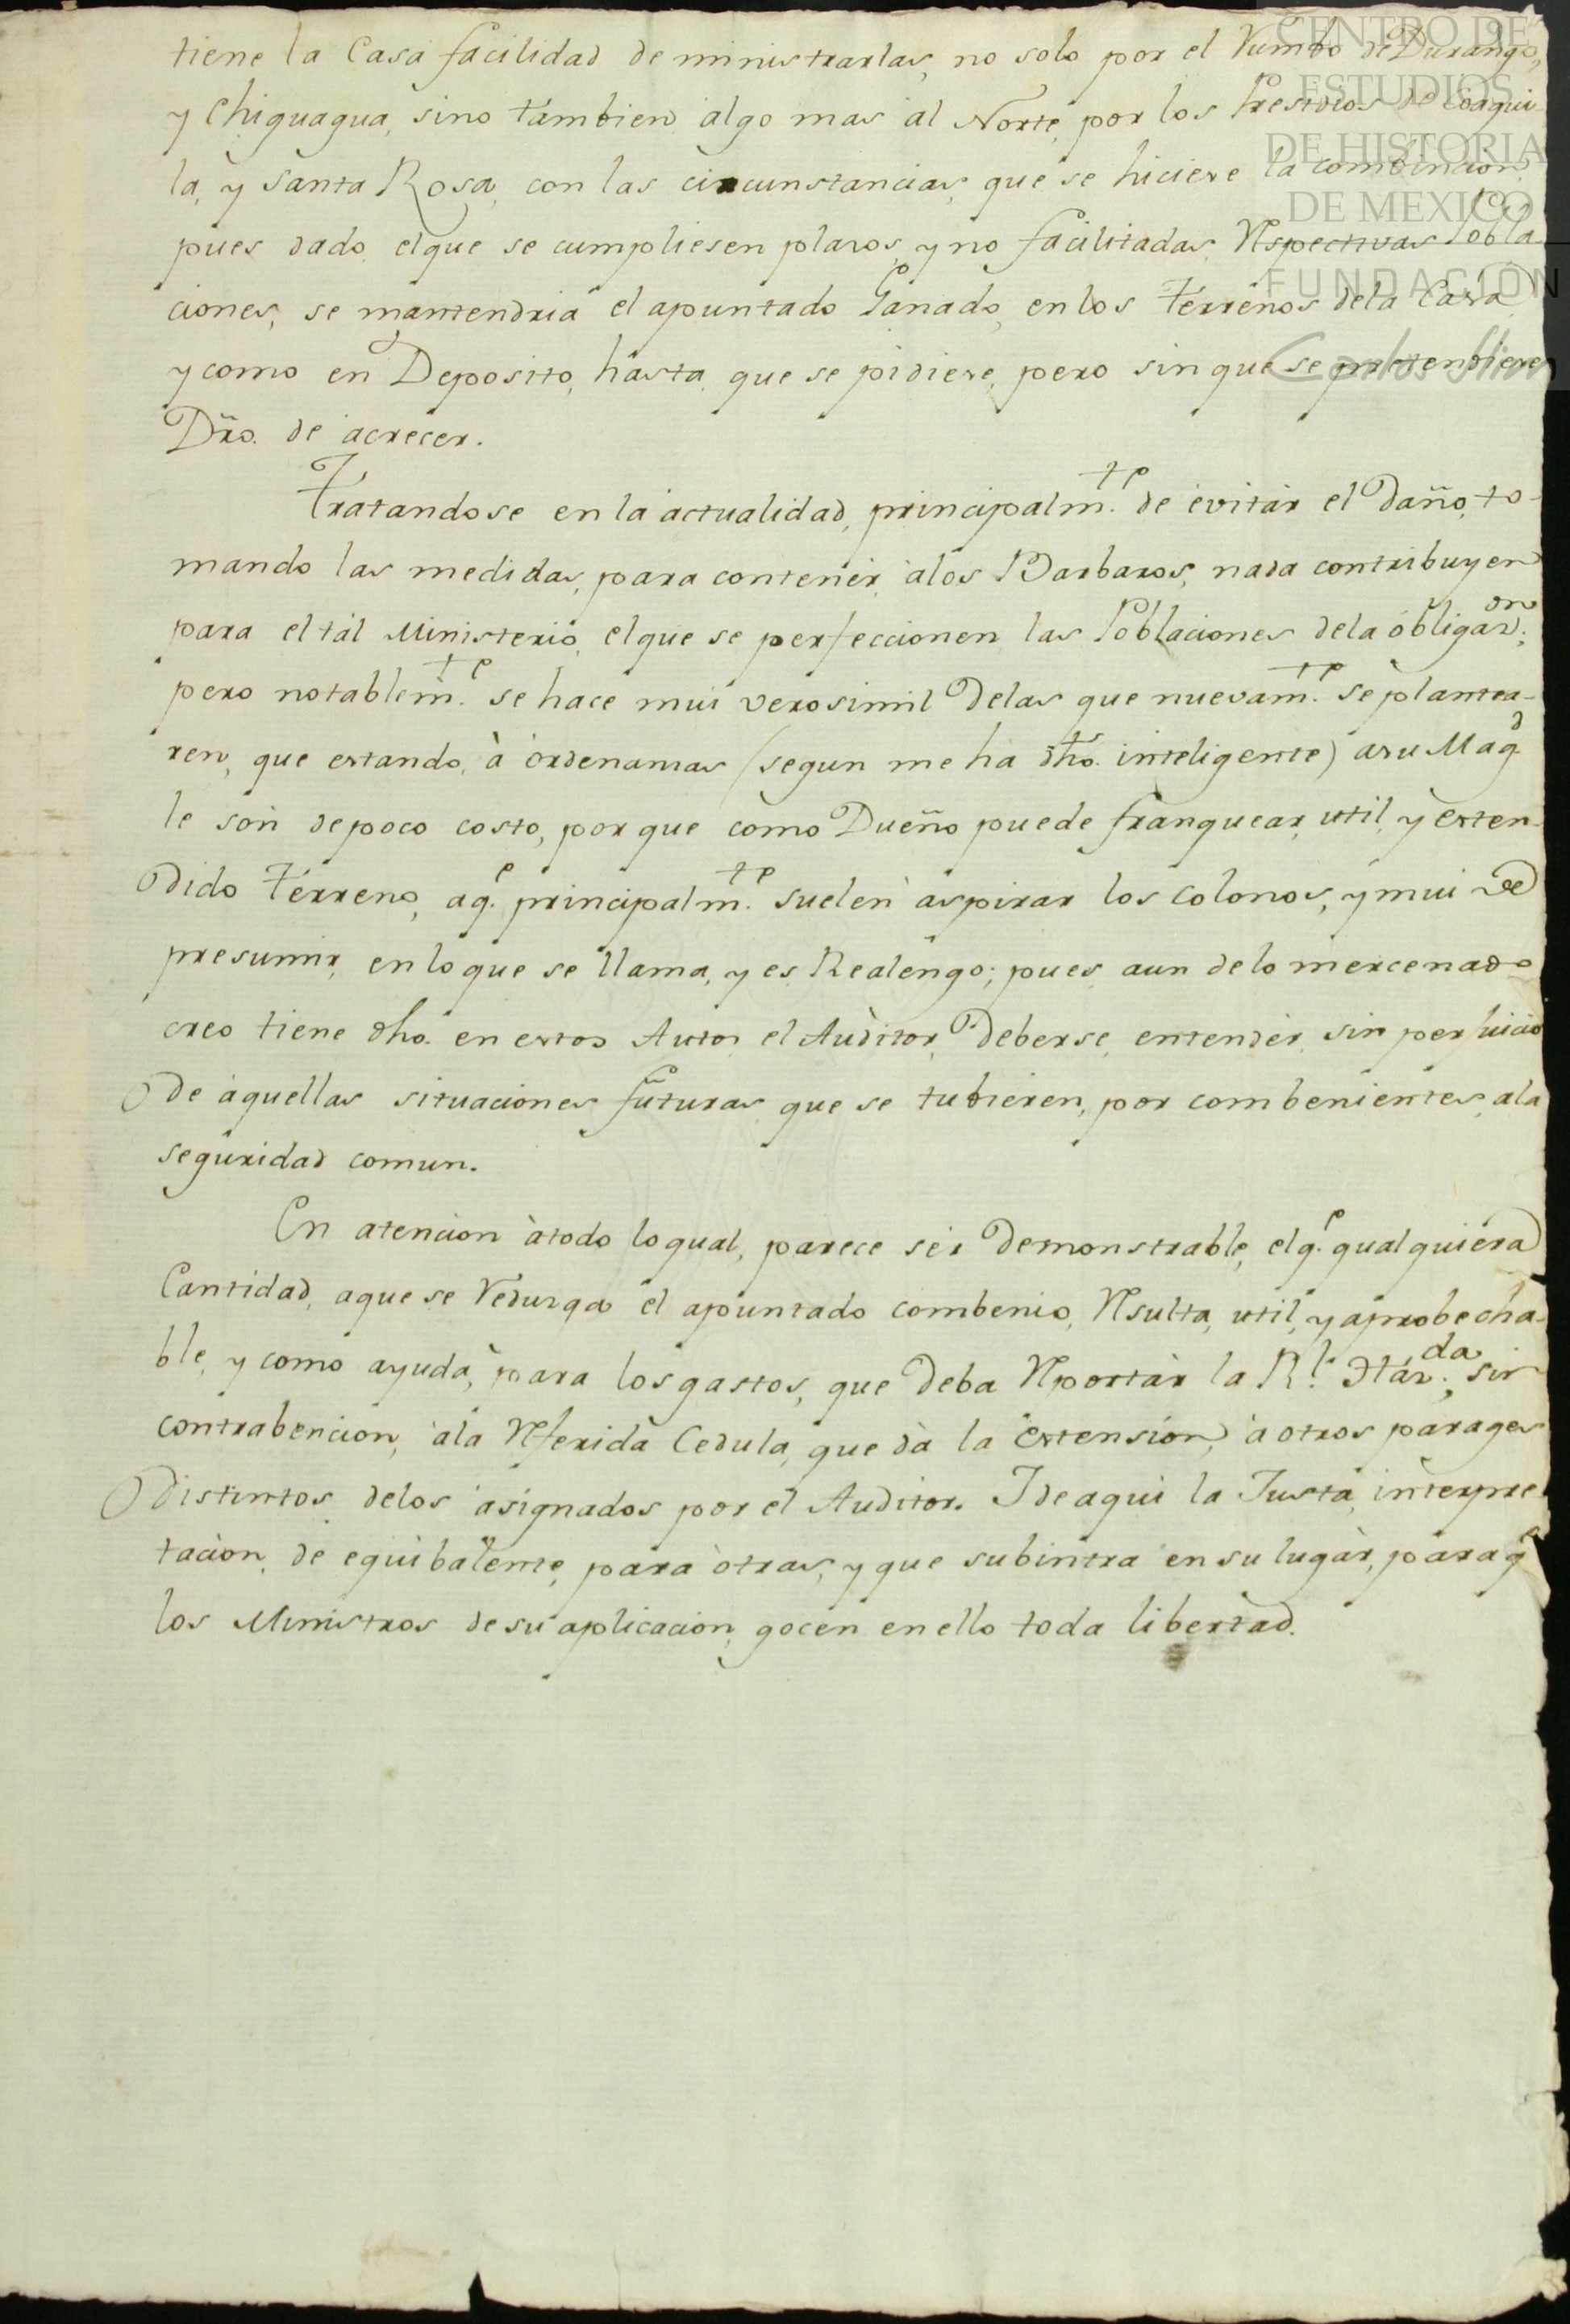 tiene la Casa facilidad de ministrarlas, no solo por el Rumbo de Durango,
y Chiguagua, sino tambien algo mas al Norte, por los Presidios de Coagui-
la, y Santa Rosa, con las circunstancias, que se hiciere la combincion,
pues dado, elque se cumpliesen plazos, y no facilitadas, Respectivas Pobla-
ciones, se mantendria el apuntado Ganado, en los terrenos dela Casa,
y como en Deposito, hasta, que se pidiere, pero sin que se pretendiere
Dr̃o. de acrecer.
Tratandose en la actualidad, principalm.te de evitar el Daño, to-
mando las medidas, para contener, àlos Barbaros, nada contribuyen
para el tál Ministerio, elque se perfeccionen, las Poblaciones dela obligaz.on;
pero notablem.te se hace mui verosimil Delas que nuevam.te se plantea-
ren, que estando, à ordenanzas (segun me ha dho. inteligente) asu Mag.d
le son de poco costo, por que como Dueño puede franquear, util, y exten-
dido terreno, aq.e principalm.te suelen aspirar los colonos, y mui de
presumir, en lo que se llama, y es Realengo; pues, aun delo mercenado
creo tiene dho. en estos Autos el Auditor, Deberse, entender, sin perjuicio
de aquellas situaciones futuras, que se tubieren, por combenientes, ala
seguridad comun.
En atencion àtodo loqual, parece ser Demonstrable, elq.e qualquiera
Cantidad, aque se Reduzga el apuntado combenio, Resulta, util, y aprobecha-
ble, y como ayuda, para los gastos, que Deba Reportàr la R.l Haz.da, sin
contrabencion, àla Referida Cedula, que dà la extension, à otros parages
distintos delos asignados por el Auditor. I de aqui la Justa, interpre-
tacion, de equibalente, para òtras, y que subintra en su lugàr, para q.e
los Ministros de su aplicacion, gocen en ello toda libertad.
CENTRO DE
ESTUDIOS
DE HISTORIA
DE MEXICO
FUNDACIÓN
Carlos Slim